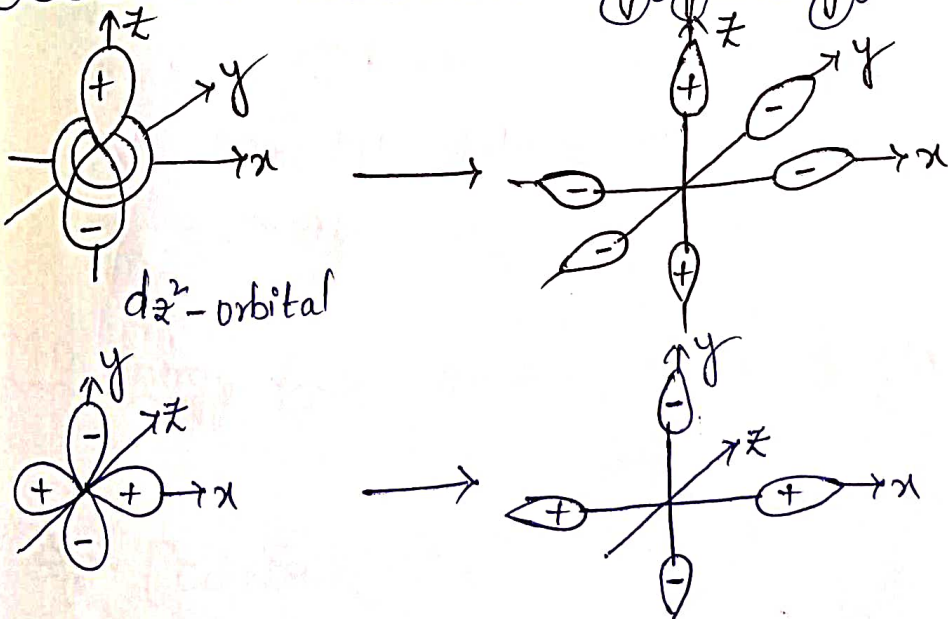 z
+
y
x
-
dz²-orbital
z
+
y
-
-
x
-
-
+
y
-
z
+
+
x
-
y
-
z
+
+
x
-